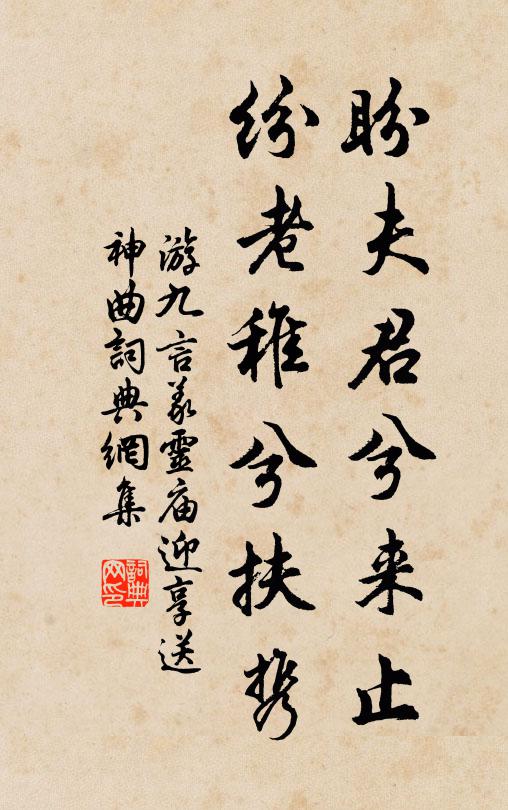 盼夫君兮来止
纷老稚兮扶携
游九言義靈庙迎享送
神曲詞典網集
詞典网印